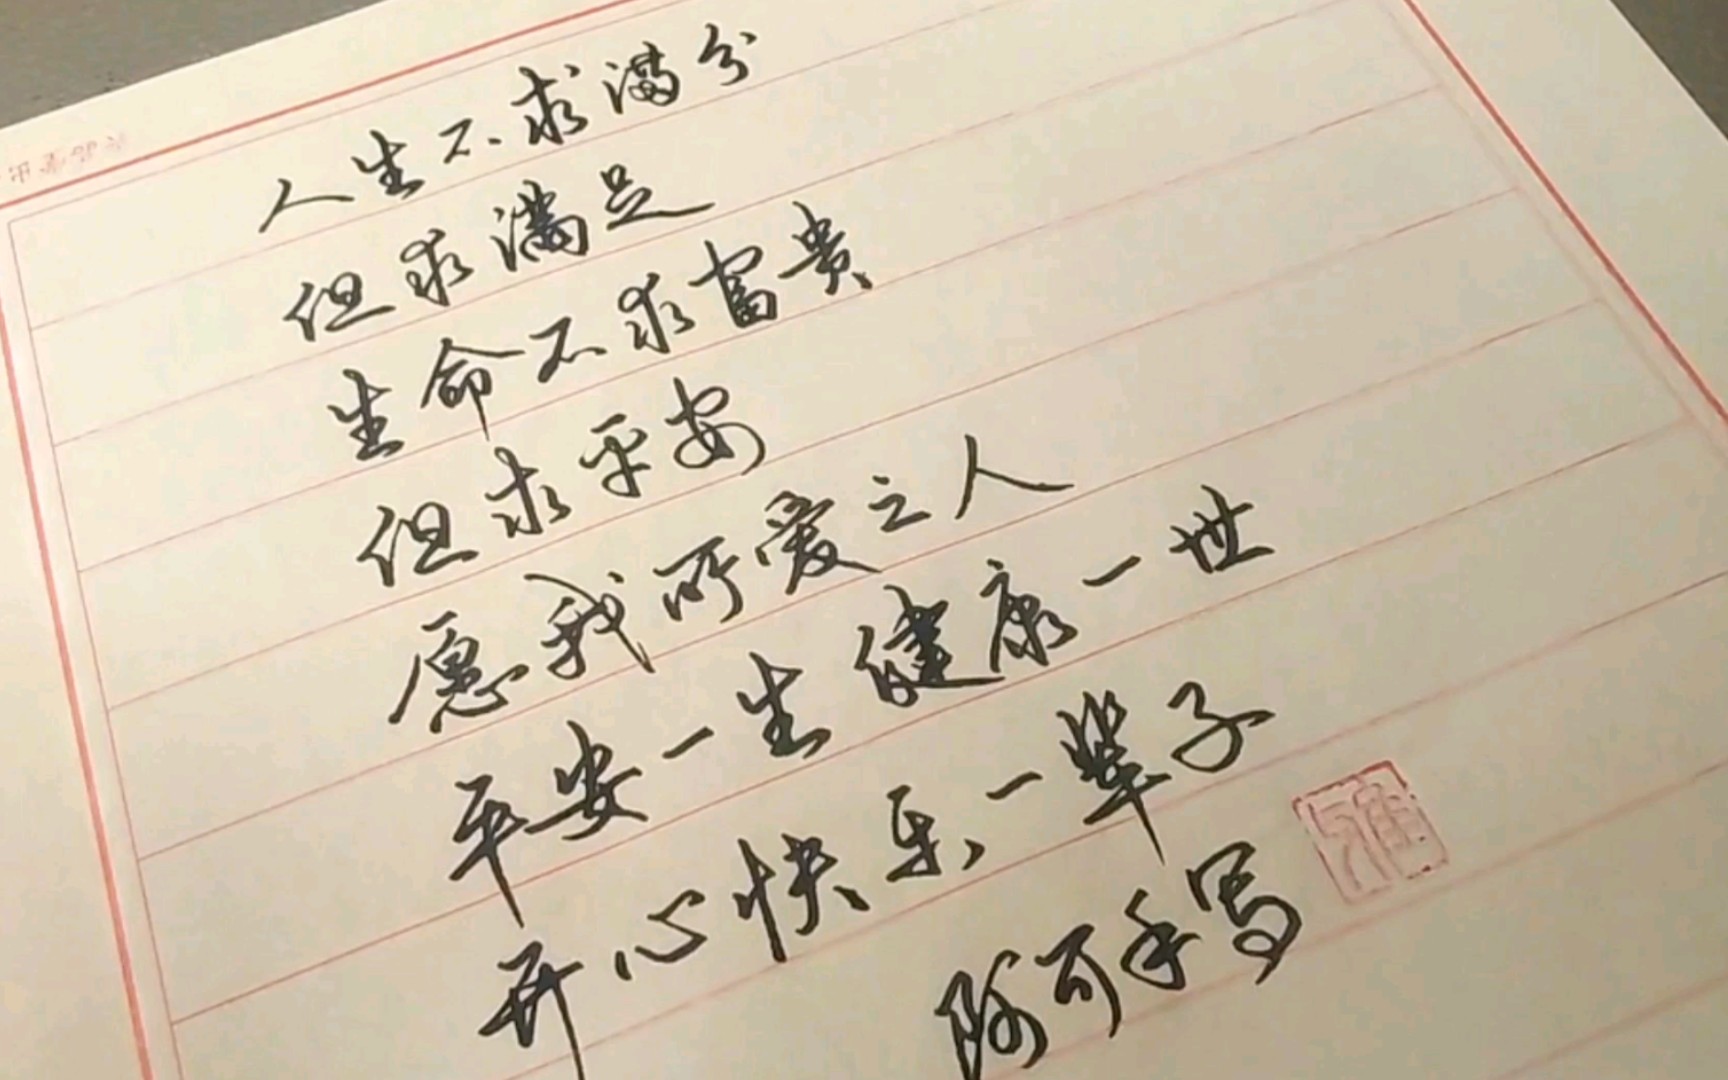 人生不求满分
但求满足
生命不求富贵
但求平安
愿我所爱之人
平安一生健康一世
开心快乐一辈子
阿可手写